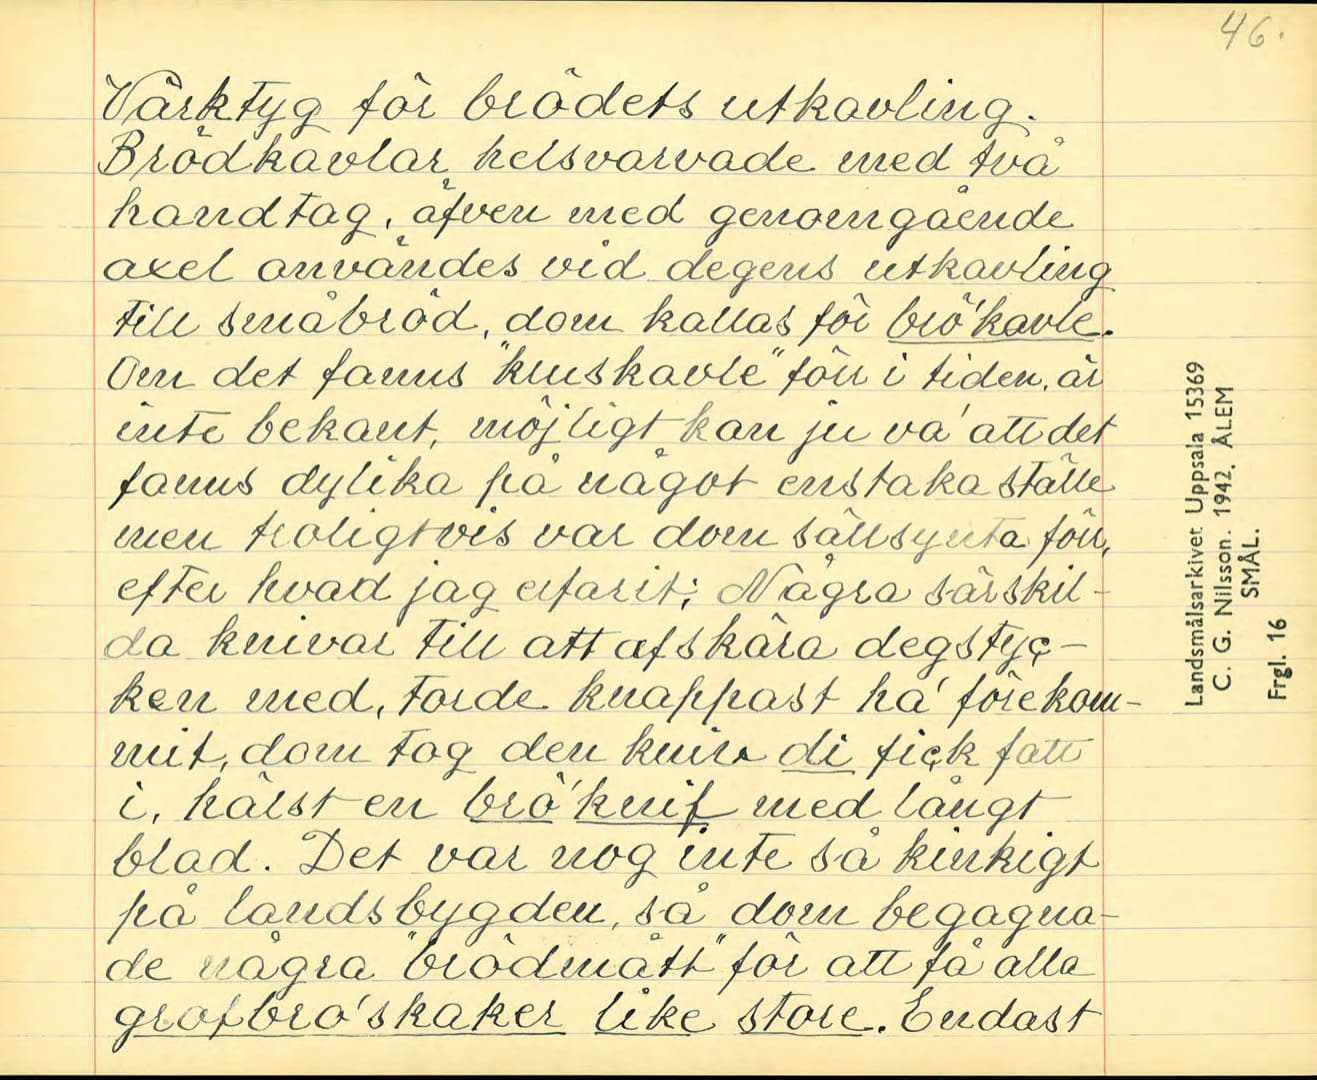 46.
Värktyg för brödets utkavling.
Brödkavlar helsvarvade med två
handtag, äfven med genomgående
axel användes vid degens utkavling
till småbröd, dom kallas för brö'kavle.
Om det fanns "kruskavle" förr i tiden, är
inte bekant, möjligt kan ju va' att det
fanns dylika på något enstaka ställe
men troligtvis var dom sällsynta förr,
efter hvad jag erfarit; Några särskil-
da knivar till att afskära degstyc-
ken med, torde knappast ha' förekom-
mit, dom tog den kniv di fick fatt
i, hälst en brö'knif med långt
blad. Det var nog inte så kinkigt
på landsbygden, så dom begagna-
de några "brödmått" för att få alla
grofbrö'skaker like store. Endast
Landsmålsarkivet Uppsala 15369
C. G. Nilsson. 1942. ÅLEM
SMÅL.
Frgl. 16